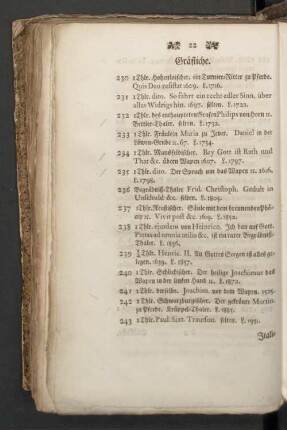 22
Gräfliche.
230 1 Thlr. Hohenloischer. ein Turnier-Ritter zu Pferde.
Quis Deo resistat 1609. L. 1716.
231 1 Thlr. dito. So fährt ein recht edler Sinn, über
alles Widrigs hin. 1697. selten. L. 1722.
232 1 Thlr. des enthaupteten Grafen Philips von Horn ec.
Bettler-Thaler. selten. L. 1732.
233 1 Thlr. Fräulein Maria zu Jever. Daniel in der
Löwen-Grube ec. 67. L. 1734.
234 1 Thlr. Mansfeldischer. Bey Gott ist Rath und
That &c. übern Wapen 1607. L. 1797.
235 1 Thlr. dito. Der Spruch um das Wapen ec. 1616.
L. 1798.
236 Begräbniß-Thaler Frid. Christoph. Gedult in
Unschuld &c. selten. L. 1809.
237 1 Thlr. Reussischer. Säule mit dem brennenden
ec. Vivit post &c. 1619. L. 1852.
238 1 Thlr. ejusdem von Heinrico. Ich bau auf Gott.
omnia &c. ist ein rarer Begräbniß-
Thaler. L. 1856.
239 Thlr. Henric. II. An Gottes Seegen ist alles ge-
legen. 1639. L. 1857.
240 1 Thlr. Schlickischer. Der heilige Joachimus das
Wapen in der linken Hand ec. L. 1872.
241 1 Thlr. derselbe. Joachim. vor dem Wapen. 1525.
242 1 Thlr. Schwarzburgischer. Der gekrönte Martin.
zu Pferde. Krüppel-Thaler. L. 1885.
243 1 Thlr. Paul. Sixt. Trautson. selten. L.
Italiä-